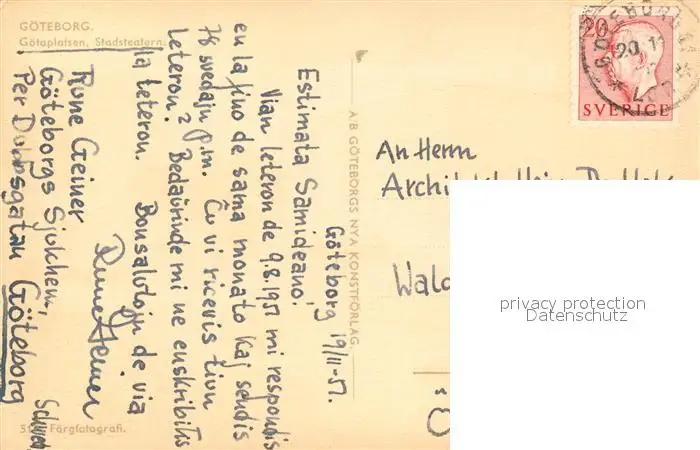 GÖTEBORG.
Götaplatsen, Stadsteatern.
Göteborg 19/11-51.
Estimata Samideano,
Vian leteron de 9.8.1951 mi respondis
en la fino de sama monato kaj sendis
78 svedajn p.m. Ĉu vi ricevis tiun
leteron? Bedaŭrinde mi ne enskribitis
tia leteron. Bonsalutojn de via
Rune Geiner
Rune Geiner
Göteborgs Sjukhem,
Per Dubbsgatan Göteborg
Färgfotografi.
A/B GÖTEBORGS NYA KONSTFÖRLAG.
20
SVERIGE
An Herrn
Wald
privacy protection
Datenschutz